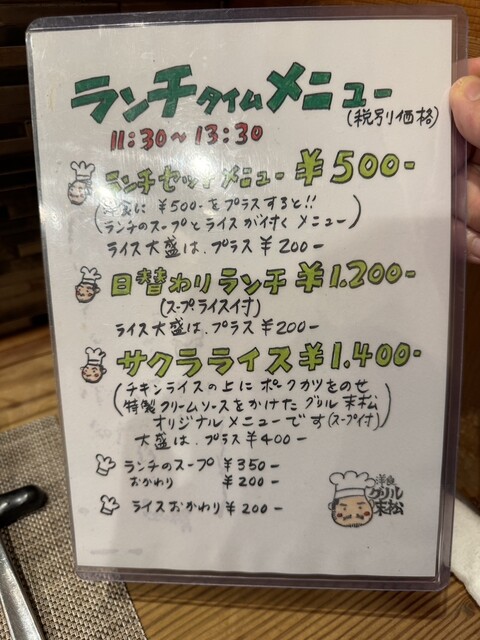 ランチタイムメニュー
(税別価格)
11:30〜13:30
ランチセットメニュー ¥500-
(洋食に ¥500-をプラスすると!!
ランチのスープとライスが付くメニュー)
ライス大盛は、プラス¥200-
日替わりランチ ¥1.200-
(スープ.ライス付)
ライス大盛は、プラス¥200-
サクラライス ¥1.400-
(チキンライスの上にポークカツをのせ
特製クリームソースをかけたグリル末松
オリジナルメニューです(スープ付))
大盛は、プラス¥400-
ランチのスープ ¥350-
おかわり ¥200-
ライスおかわり ¥200-
洋食
グリル
末松